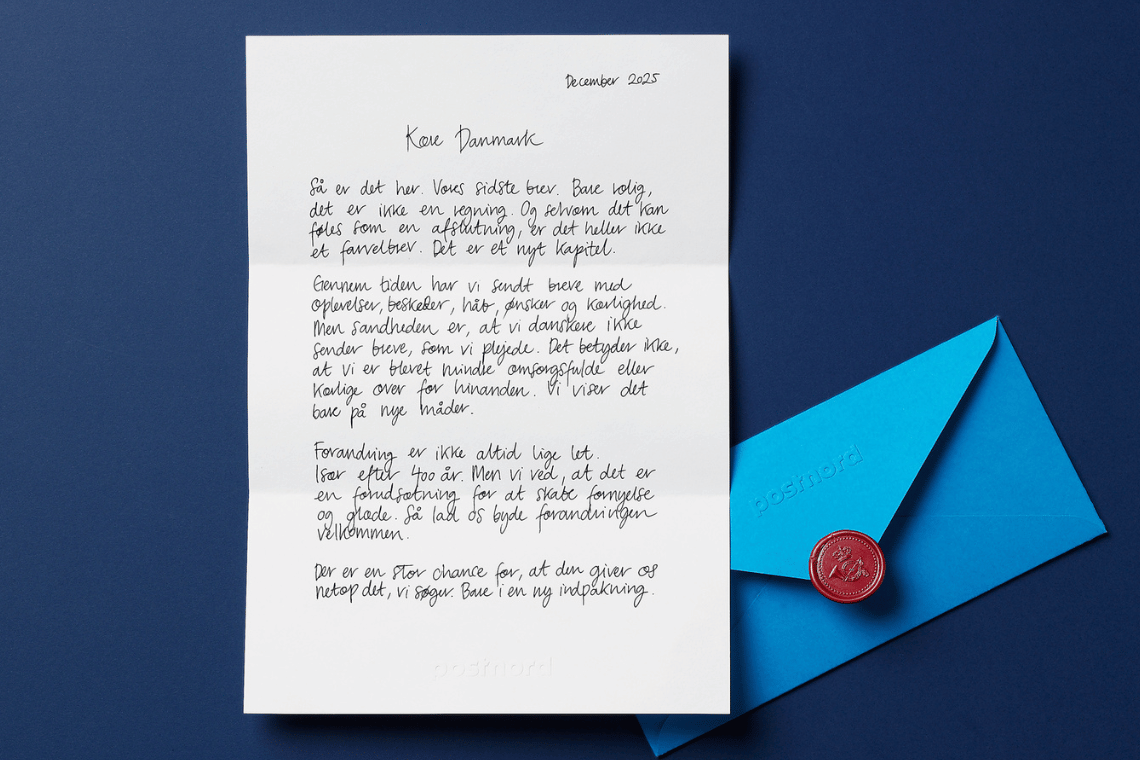 December 2025
Kære Danmark
Så er det her. Vores sidste brev. Bare rolig,
det er ikke en regning. Og selvom det kan
føles som en afslutning, er det heller ikke
et farvelbrev. Det er et nyt kapitel.
Gennem tiden har vi sendt breve med
oplevelser, beskeder, håb, ønsker og kærlighed.
Men sandheden er, at vi danskere ikke
sender breve, som vi plejede. Det betyder ikke,
at vi er blevet mindre omsorgsfulde eller
kærlige over for hinanden. Vi viser det
bare på nye måder.
Forandring er ikke altid lige let.
Især efter 400 år. Men vi ved, at det er
en forudsætning for at skabe fornyelse
og glæde. Så lad os byde forandringen
velkommen.
Der er en stor chance for, at den giver os
netop det, vi søger. Bare i en ny indpakning.
postnord
postnord